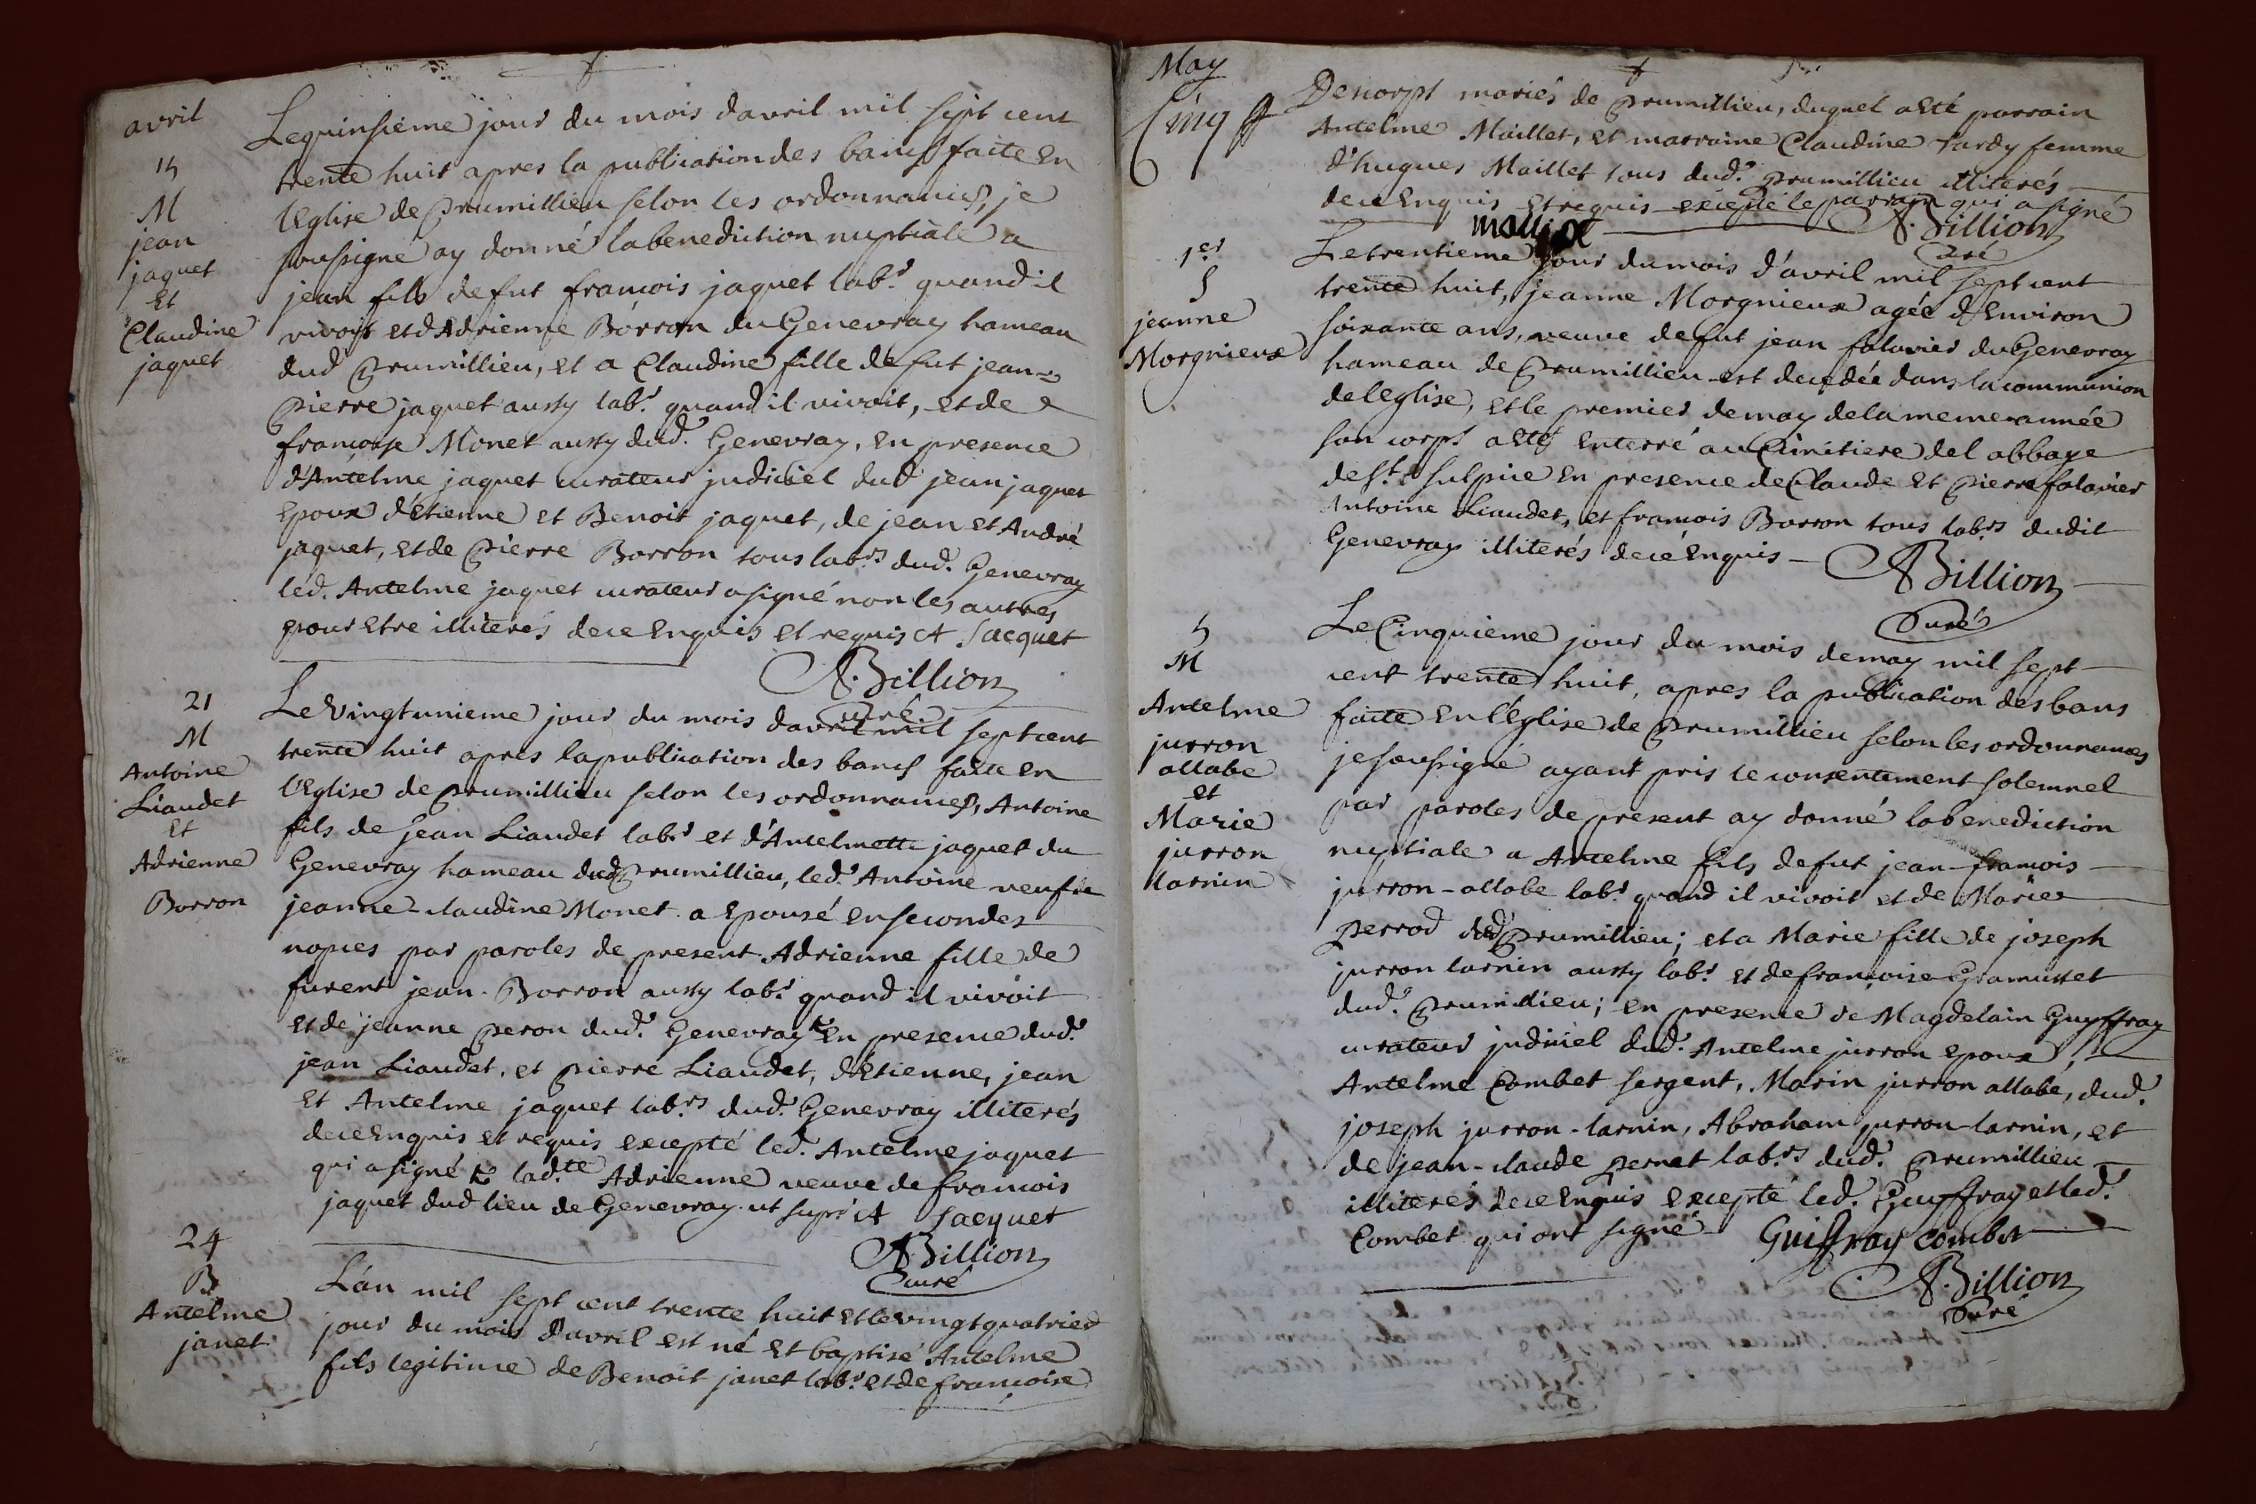 avril
15
M
jean
jaquet
Et
Claudine
jaquet
Le quinsieme jour du mois davril mil sept cent
trente huit apres la publication des bans faite En
l'Eglise de Prumillieu selon les ordonnances, je
soussigné ay donné la benediction nuptiale a
jean fils de fut francois jaquet lab.r quand il
vivoit et d'Adrienne Borron du Genevray hameau
dud Prumillieu, et a Claudine fille de fut jean-
Pierre jaquet aussy lab.r quand il vivoit, et de
francoise Monet aussy dud. Genevray, En presence
d'Antelme jaquet curateur judiciel dud jean jaquet
Epoux d'Etienne et Benoit jaquet, de jean et André
jaquet, et de Pierre Borron tous lab.rs dud. Genevray
led. Antelme jaquet curateur a signé non les autres
pour Etre illiterés de ce Enquis et requis A Jacquet
A. Billion
curé
21
M
Antoine
Liaudet
Et
Adrienne
Borron
Le Vingt unieme jour du mois davril mil sept cent
trente huit apres la publication des bans faite en
l'Eglise de Prumillieu selon les ordonnances, Antoine
fils de Jean Liaudet lab.r et d'Antelmette jaquet du
Genevray hameau dud Prumillieu, led. Antoine veuf de
jeanne-claudine Monet a Epousé en secondes
nopces par paroles de present Adrienne fille de
furent jean Borron aussy lab.r quand il vivoit
et de jeanne Peron dud. Genevray En presence dud.
jean Liaudet, et Pierre Liaudet, d'Etienne, jean
Et Antelme jaquet lab.rs dud. Genevray illiterés
de ce Enquis et requis excepté led. Antelme jaquet
qui a signé lad.te Adrienne veuve de francois
jaquet dud lieu de Genevray ut supr A Jacquet
A. Billion
Curé
24
B
Antelme
janet
L'an mil sept cent trente huit et le vingt quatrieme
jour du mois d'avril est né et baptisé Antelme
fils legitime de Benoit janet lab.r et de francoise
May
Cinq
Descorps mariés de Prumillieu, duquel a Eté parrain
Antelme Maillet, et marraine Claudine tardy femme
d'hugues Maillet tous dud. Prumillieu illiterés
de ce Enquis et requis excepté le parrain qui a signé
A. Billion
Curé
1.er
S
jeanne
Morgnieux
Le trentieme jour du mois d'avril mil sept cent
trente huit, jeanne Morgnieux agée d'Environ
soixante ans, veuve de fut jean falavier du Genevray
hameau de Prumillieu est decedée dans la communion
de l'eglise, et le premier de may de la meme année
son corps a Eté Enterré au Cimitiere de l'abbaye
de S.t sulpice En presence de Claude Et Pierre falavier
Antoine Liaudet, et francois Borron tous lab.rs dudit
Genevray illiterés de ce Enquis
A. Billion
Curé
5
M
Antelme
jurron
allabe
et
Marie
jurron
larnin
Le Cinquieme jour du mois de may mil sept
cent trente huit, apres la publication des bans
faite En l'Eglise de Prumillieu selon les ordonnances
je soussigné ayant pris le consentement solemnel
par paroles de present ay donné la benediction
nuptiale a Antelme fils de fut jean-francois
jurron-allabe lab.r quand il vivoit et de Marie
Perrod dud Prumillieu; et a Marie fille de joseph
jurron larnin aussy lab.r et de francoise Gramusset
dud. Prumillieu; En presence de Magdelain Guyffray
curateur judiciel dud. Antelme jurron epoux,
Antelme Combet sergent, Marin jurron allabe, dud.
joseph jurron-larnin, Abraham jurron-larnin, et
de jean-claude Pernet lab.rs dud. Prumillieu
illiterés de ce Enquis Excepté led. Guyffray et led.
Combet qui ont signé Guiffray Combet
A. Billion
Curé